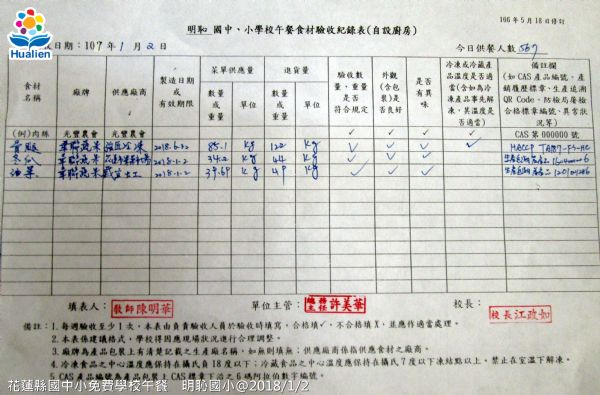 Hualien
106年5月18日修訂
明恥 國中、小學校午餐食材驗收紀錄表(自設廚房)
日期：107年1月2日
今日供餐人數：567
食材名稱 廠牌 供應廠商 製造日期或有效期限 菜單供應量 進貨量 驗收數量，重量是否符合規定 外觀(含包裝)是否良好 是否有異味 冷凍或冷藏產品溫度是否適當(含如為冷凍產品事先解凍，其溫度是否適當) 備註欄(如CAS產品編號，產銷履歷標章，生產追溯QR Code，防檢局屠檢合格標章編號，具害狀況等)
數量或重量 單位 數量或重量 單位
(例)肉絲 光豐農會 光豐農會 ✓ ✓ ✓ ✓ CAS第000000號
2018.6.22 85.1 kg 122 kg ✓ ✓ ✓ ✓
冬瓜 2018.1.2 34.2 kg 44 kg ✓ ✓ ✓
油菜 2018.1.2 39.69 kg 49 kg ✓ ✓ ✓
填表人： 教師陳明華 單位主管： 總務主任許美華 校長： 校長江政如
備註：1.每週驗收至少1次，本表由負責驗收人員於驗收時填寫，合格填✓，不合格填X，並應作適當處理。
2.本表係建議格式，學校得因應現場狀況進行合理調整。
3.廠牌為產品包裝上有清楚記載之生產廠名稱，如無則填無；供應廠商係指供應食材之廠商。
4.冷凍食品之中心溫度應保持在攝氏負18度以下；冷藏食品之中心溫度應保持在攝氏7度以下凍結點以上，禁止在室溫下解凍。
5.CAS產品編號為產品包裝上CAS標章下沿之6碼阿拉伯數字編號。
花蓮縣國中小免費學校午餐 明恥國小@2018/1/2